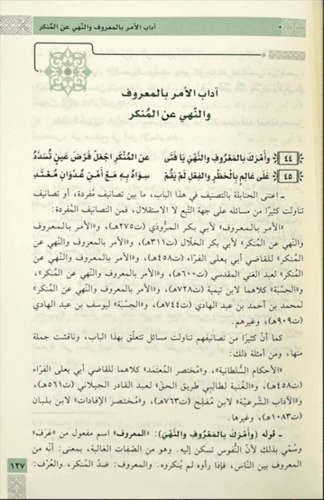 آداب الأمر بالمعروف والنهي عن المنكر
آداب الأمر بالمعروف
والنَّهي عن المُنكر
٤٤ وَأَمْرَكَ بِالمَعْرُوفِ وَالنَّهْيَ يَا فَتَى عَنِ المُنْكَرِ اجْعَلْ فَرْضَ عَيْنٍ تُسَدَّدُ
٤٥ عَلَى عَالِمٍ بِالْحَظْرِ وَالفِعْلِ لَمْ يَقُمْ سِوَاهُ بِهِ مَعْ أَمْنِ عُدْوَانِ مُعْتَدِ
ـ اعتنى الحنابلة بالتصنيف في هذا الباب، ما بين تصانيف مُفردة، أو تصانيف
تناولت كثيرًا من مسائله على جهة التَّبع لا الاستقلال، فمن التصانيف المُفردة:
«الأمر بالمعروف» لأبي بكر المرُّوذي (ت٢٧٥هـ)، و«الأمر بالمعروف
والنَّهي عن المنكر» لأبي بكر الخلَّال (ت٣١١هـ)، و«الأمر بالمعروف والنَّهي عن
المنكر» للقاضي أبي يعلى الفرَّاء (ت٤٥٨هـ)، و«الأمر بالمعروف والنَّهي عن
المنكر» لعبد الغني المقدسي (ت٦٠٠هـ)، و«الأمر بالمعروف والنَّهي عن المنكر»،
و«الحِسْبَة» كلاهما لابن تيمية (ت٧٢٨هـ)، و«الأمر بالمعروف والنَّهي عن المنكر»
لمحمد بن أحمد بن عبد الهادي (ت٧٤٤هـ)، و«الحِسْبَة» ليوسف بن عبد الهادي
(ت٩٠٩هـ)، وغيرهم.
كما أنَّ كثيرًا من تصانيفهم تناولت مسائل تتعلَّق بهذا الباب، وناقشت جملة
منها، ومن أمثلة ذلك:
«الأحكام السُّلطانية»، و«مُختصر المُعتمَد» كلاهما للقاضي أبي يعلى الفرَّاء
(ت٤٥٨هـ)، و«الغُنية لطالبي طريق الحق» لعبد القادر الجيلاني (ت٥٦١هـ)،
و«الآداب الشَّرعيَّة» لابن مُفلح (ت٧٦٣هـ)، و«مُختصر الإفادات» لابن بلبان
(ت١٠٨٣هـ)، وغيرها.
ـ قوله (وَأَمْرَكَ بِالمَعْرُوفِ وَالنَّهْيَ): «المعروف» اسم مفعول من «عَرَف»
وسُمِّي بذلك لأنَّ النُّفوس تسكن إليه. وهو من الصِّفات الغالبة، بمعنى: أنَّه من
المعروف بين النَّاس، فإذا رأوه لم يُنكروه. والمعروف: ضدُّ المنكر، والعُرْف:
١٢٧